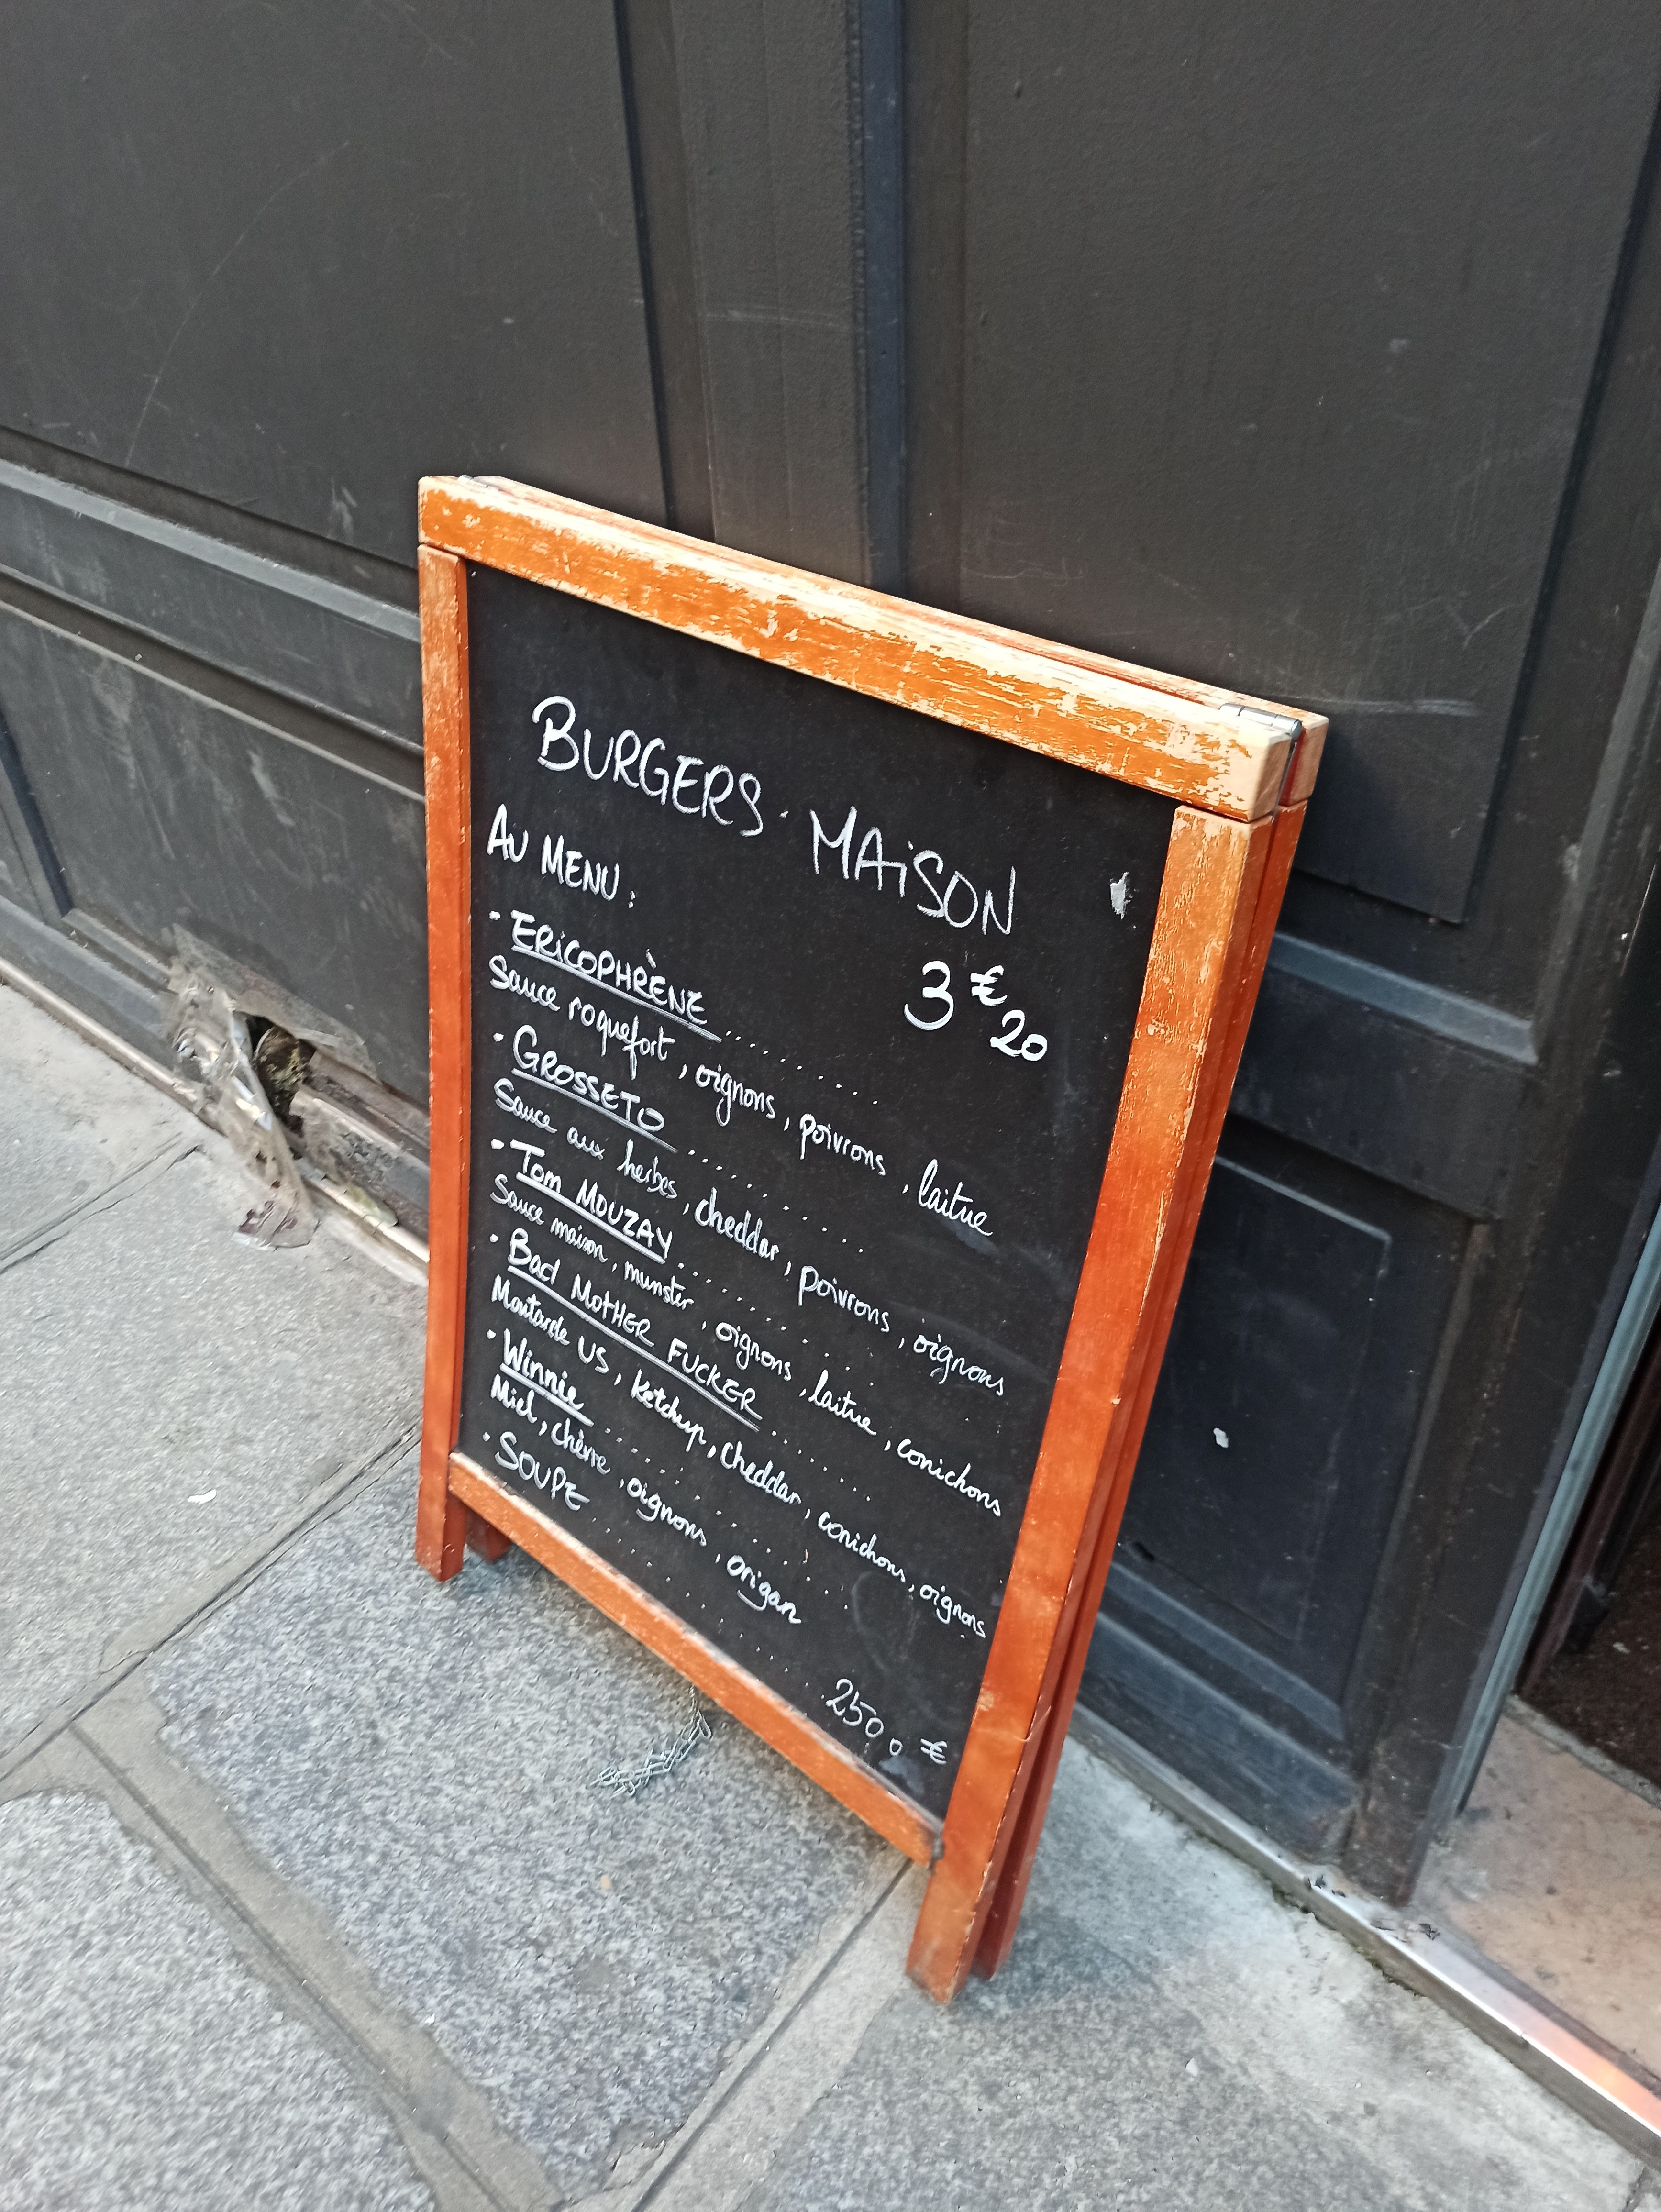 BURGERS · MAISON
AU MENU :
3€20
· ERICOPHRÈNE ..............
Sauce roquefort, oignons, poivrons, laitue
· GROSSETO ..............
Sauce aux herbes, cheddar, poivrons, oignons
· TOM MOUZAY ..............
Sauce maison, munster, oignons, laitue, conichons
· Bad MOTHER FUCKER .........
Moutarde US, Ketchup, cheddar, conichons, oignons
· Winnie ..............
Miel, chèvre, oignons, origan
· SOUPE .............. 250,0 €